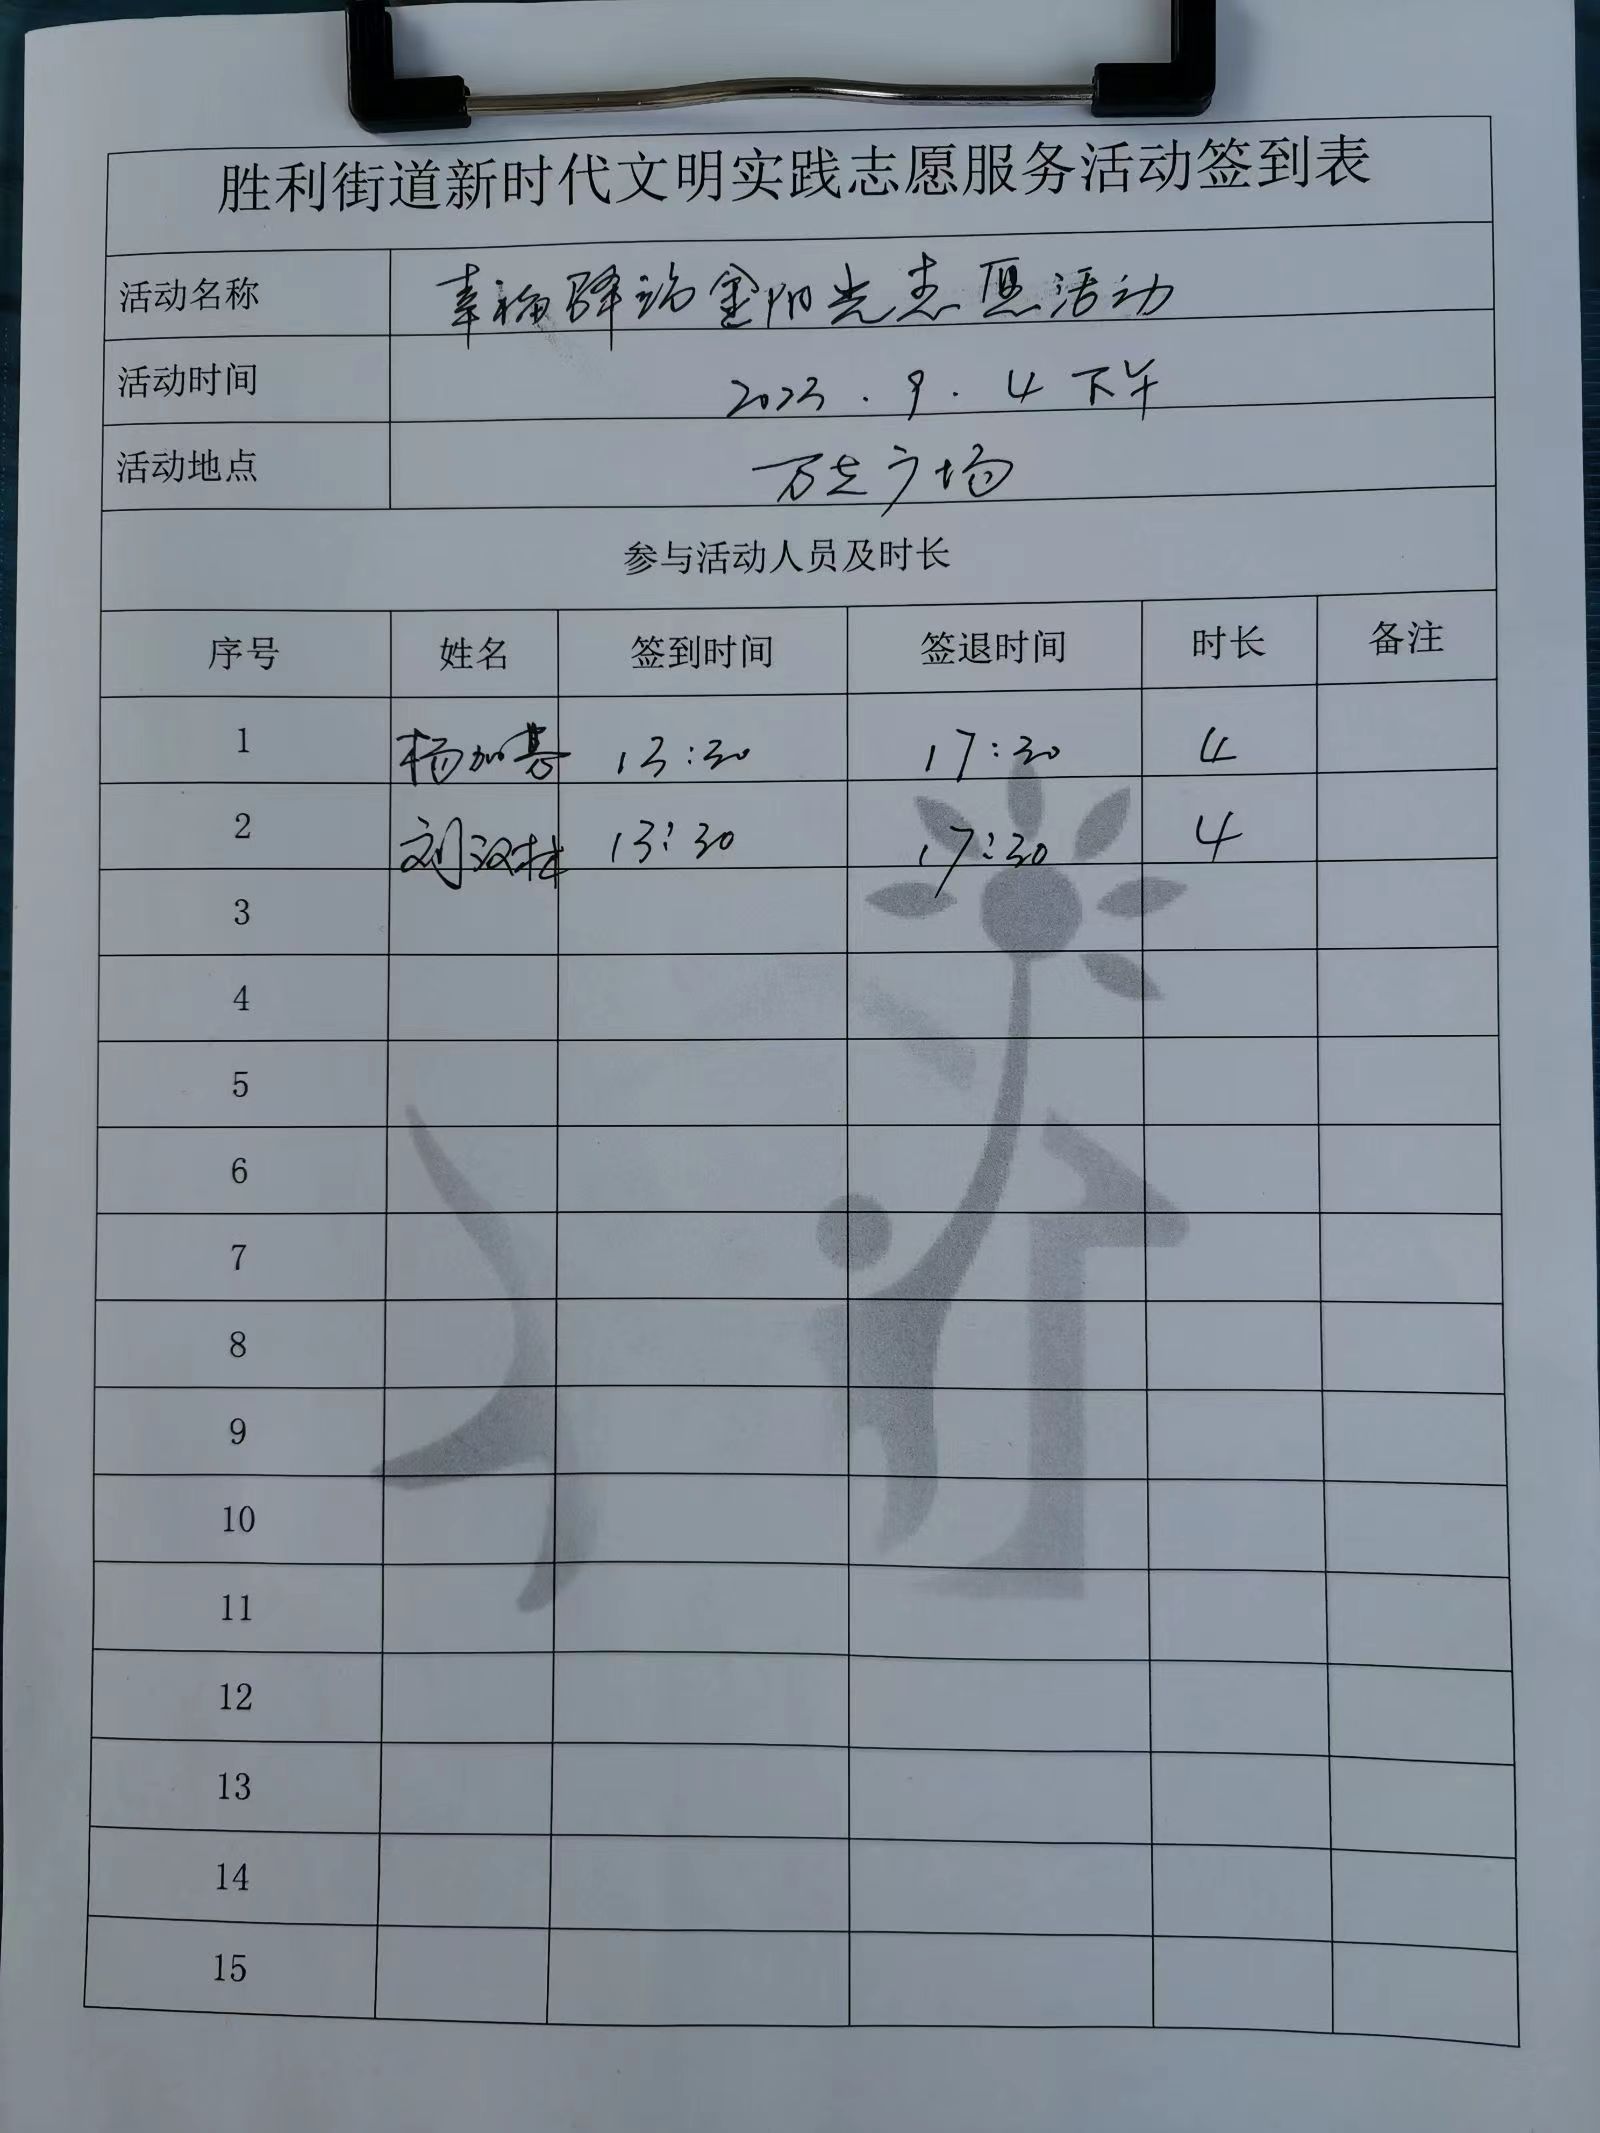 胜利街道新时代文明实践志愿服务活动签到表
活动名称 幸福驿站金阳光志愿活动
活动时间 2023.9.4下午
活动地点 万达广场
参与活动人员及时长
序号 姓名 签到时间 签退时间 时长 备注
1 杨加基 13:30 17:30 4
2 刘汉林 13:30 17:30 4
3
4
5
6
7
8
9
10
11
12
13
14
15